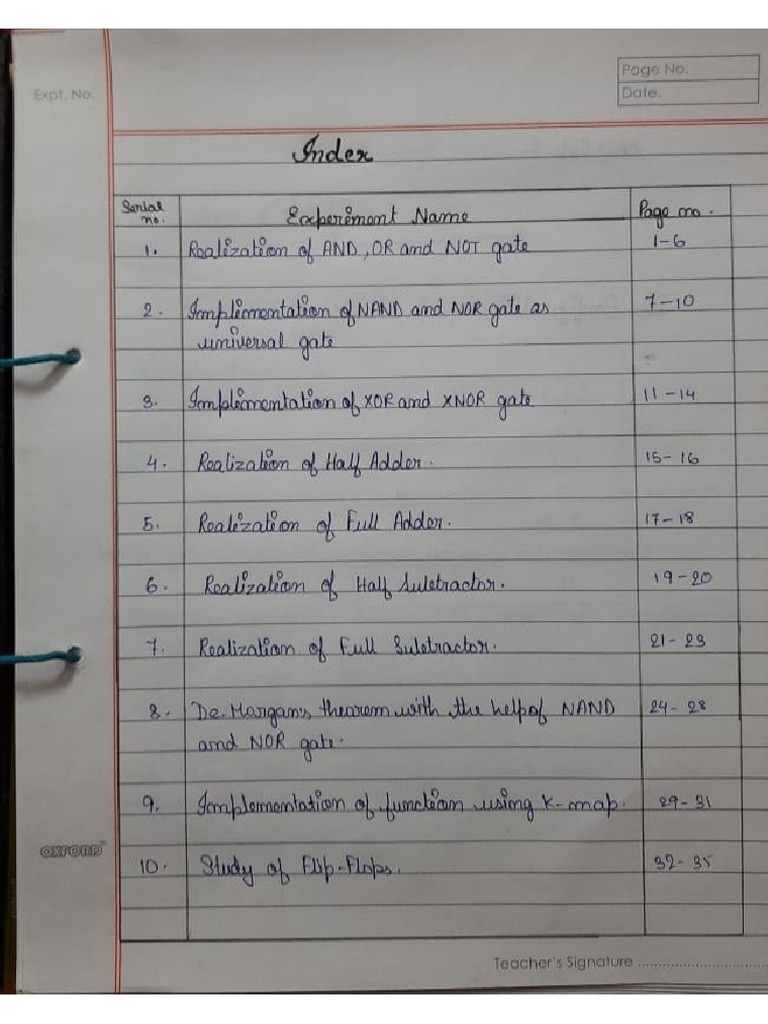 Page No.
Expt. No.
Date.
Index
Serial no. Experiment Name Page no.
1. Realization of AND, OR and NOT gate 1-6
2. Implimentation of NAND and NOR gate as 7-10
universal gate
3. Implimentation of XOR and XNOR gate 11-14
4. Realization of Half Adder. 15-16
5. Realization of Full Adder. 17-18
6. Realization of Half Subtractor. 19-20
7. Realization of Full Subtractor. 21-23
8. De. Morgan's theorem with the help of NAND 24-28
and NOR gate.
9. Implementation of function using K-map. 29-31
OXFORD
10. Study of Flip-Flops. 32-35
Teacher's Signature